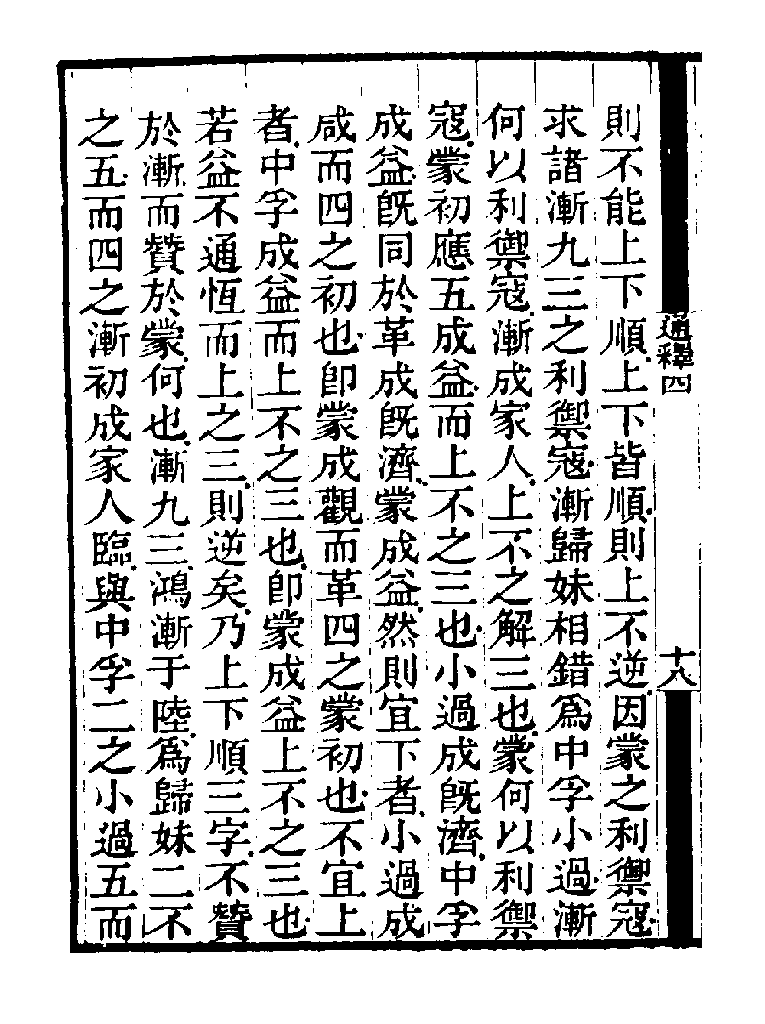 通釋四
十八
則不能上下順上下皆順則上不逆因蒙之利禦寇
求諸漸九三之利禦寇漸歸妹相錯爲中孚小過漸
何以利禦寇漸成家人上不之解三也蒙何以利禦
寇蒙初應五成益而上不之三也小過成旣濟中孚
成益旣同於革成旣濟蒙成益然則宜下者小過成
咸而四之初也卽蒙成觀而革四之蒙初也不宜上
者中孚成益而上不之三也卽蒙成益上不之三也
若益不通恆而上之三則逆矣乃上下順三字不贊
於漸而贊於蒙何也漸九三鴻漸于陸爲歸妹二不
之五而四之漸初成家人臨與中孚二之小過五而